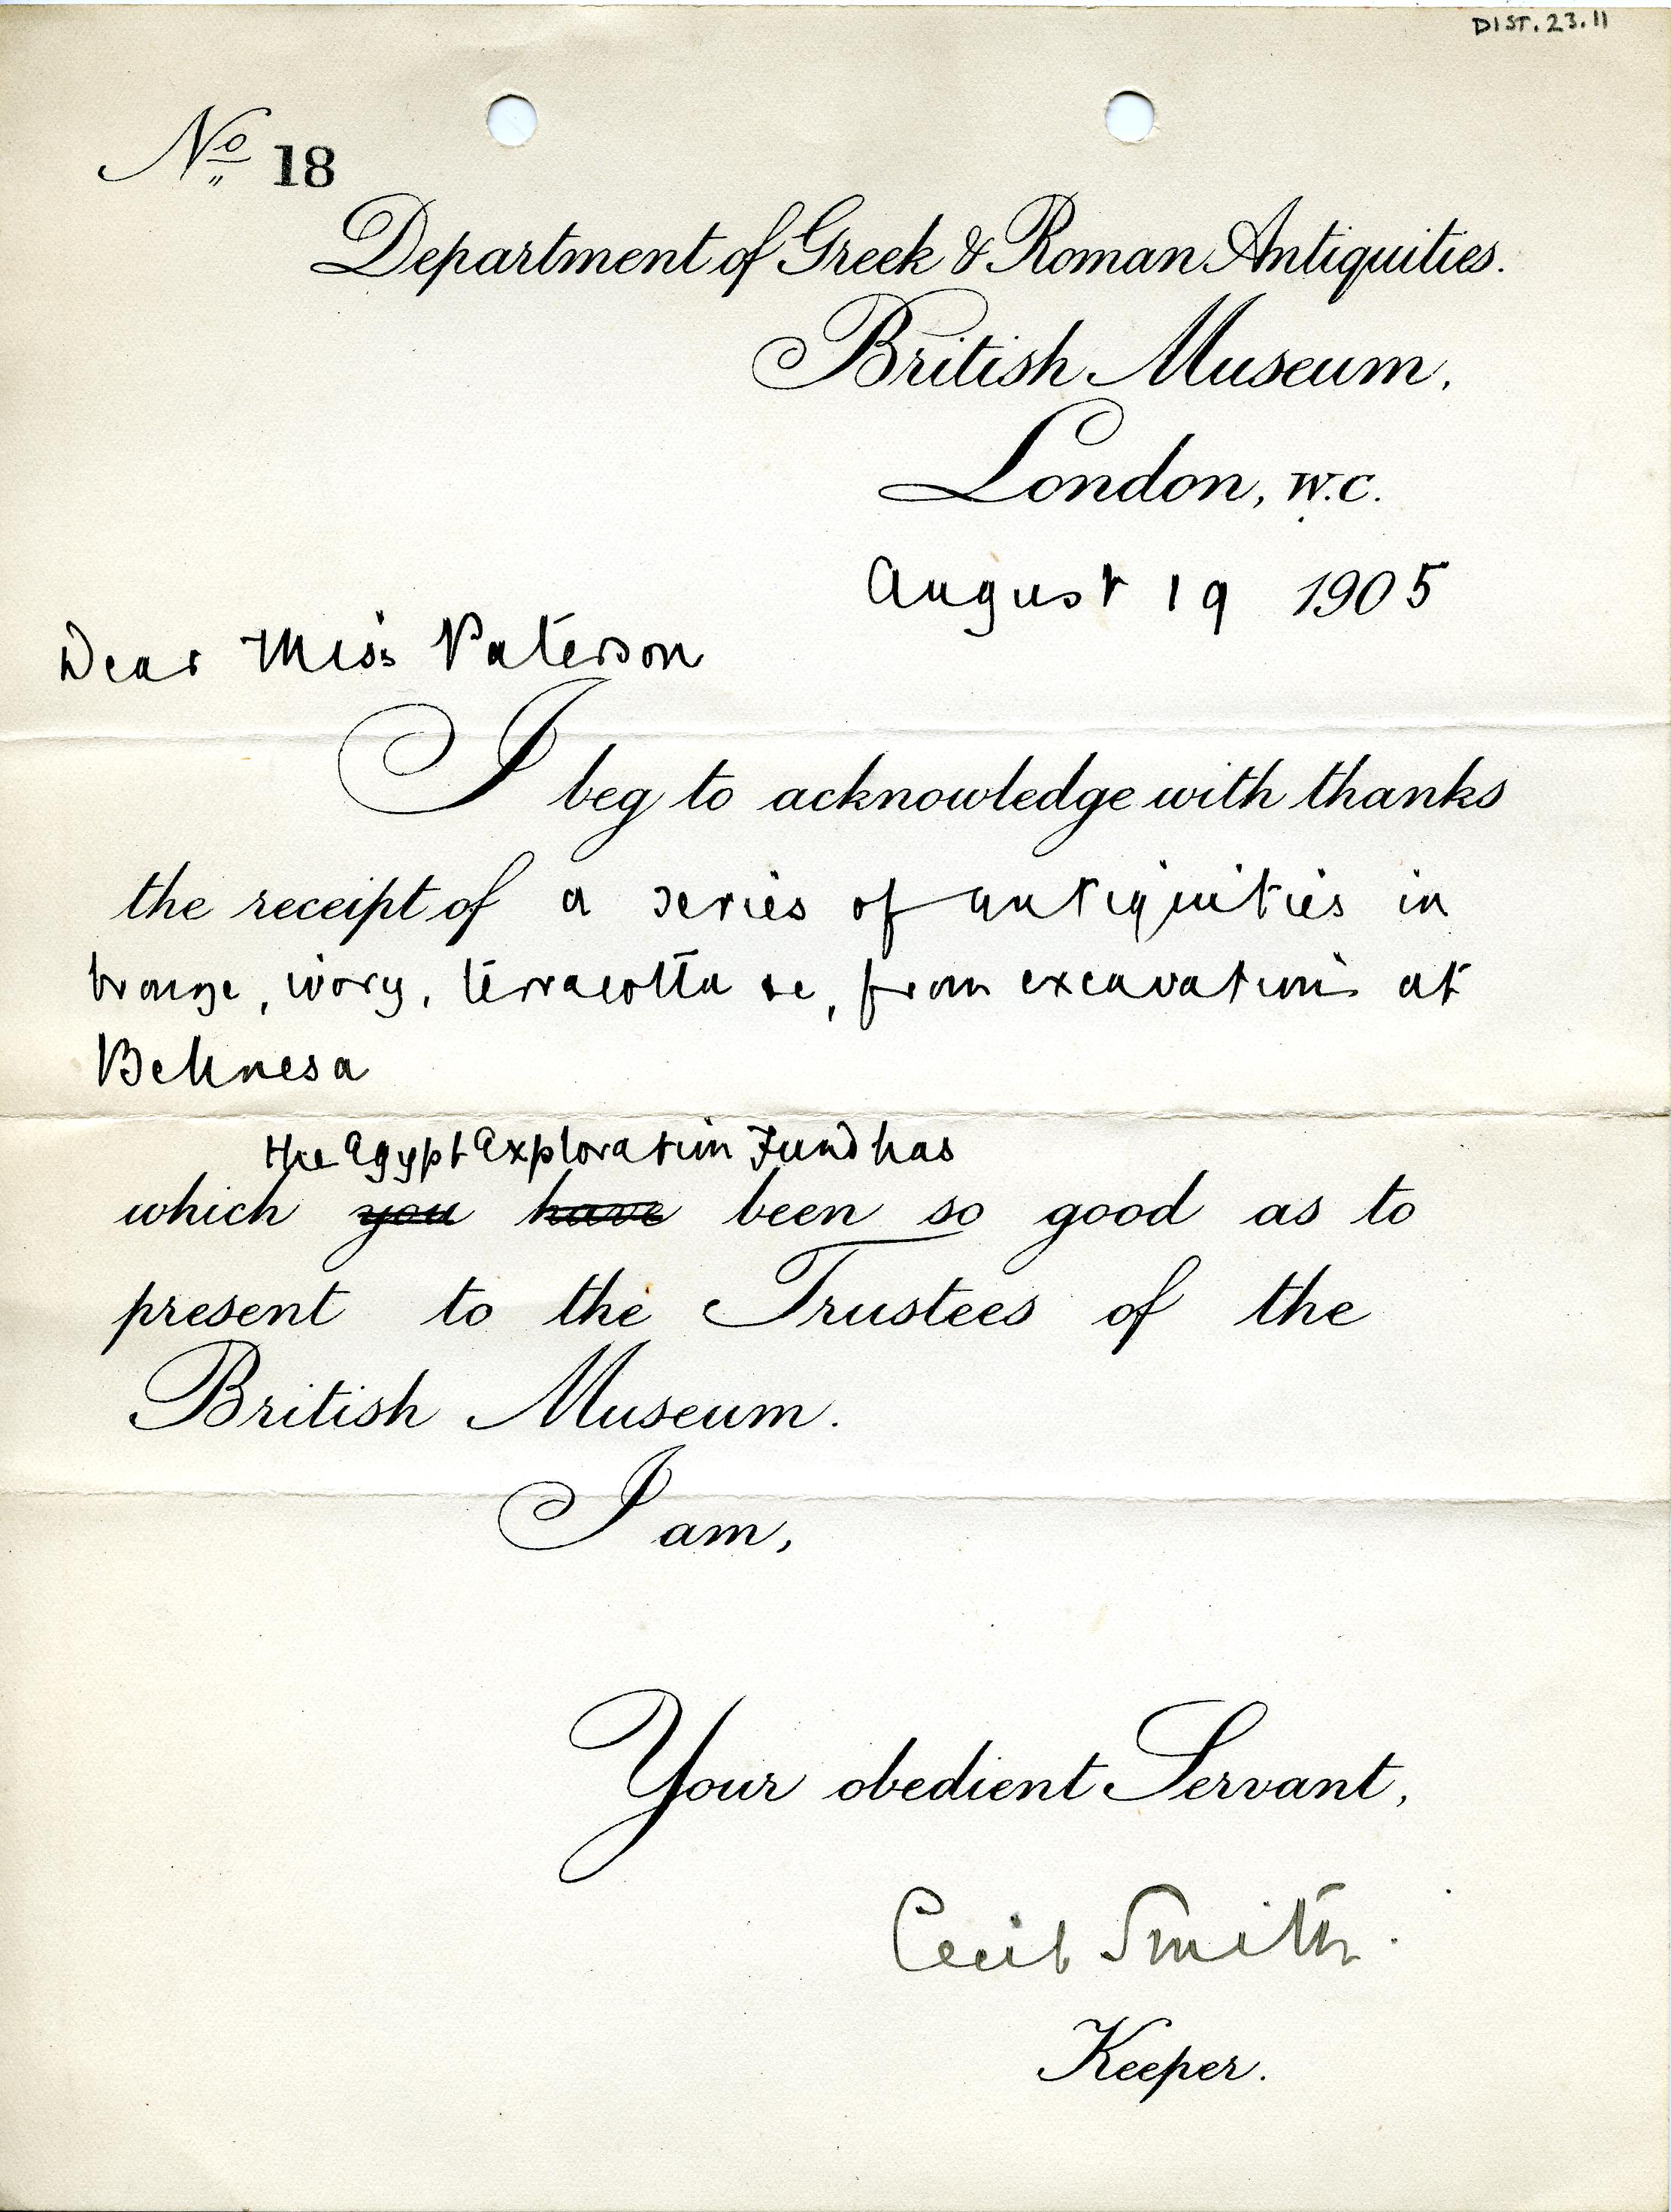 DIST. 23.11
No 18
Department of Greek & Roman Antiquities.
British Museum,
London, W.C.
August 19 1905
Dear Miss Paterson
I beg to acknowledge with thanks
the receipt of a series of antiquities in
bronze, ivory, terracotta &c, from excavations at
Behnesa
the Egypt Exploration Fund has
which you have been so good as to
present to the Trustees of the
British Museum.
I am,
Your obedient Servant,
Cecil Smith.
Keeper.